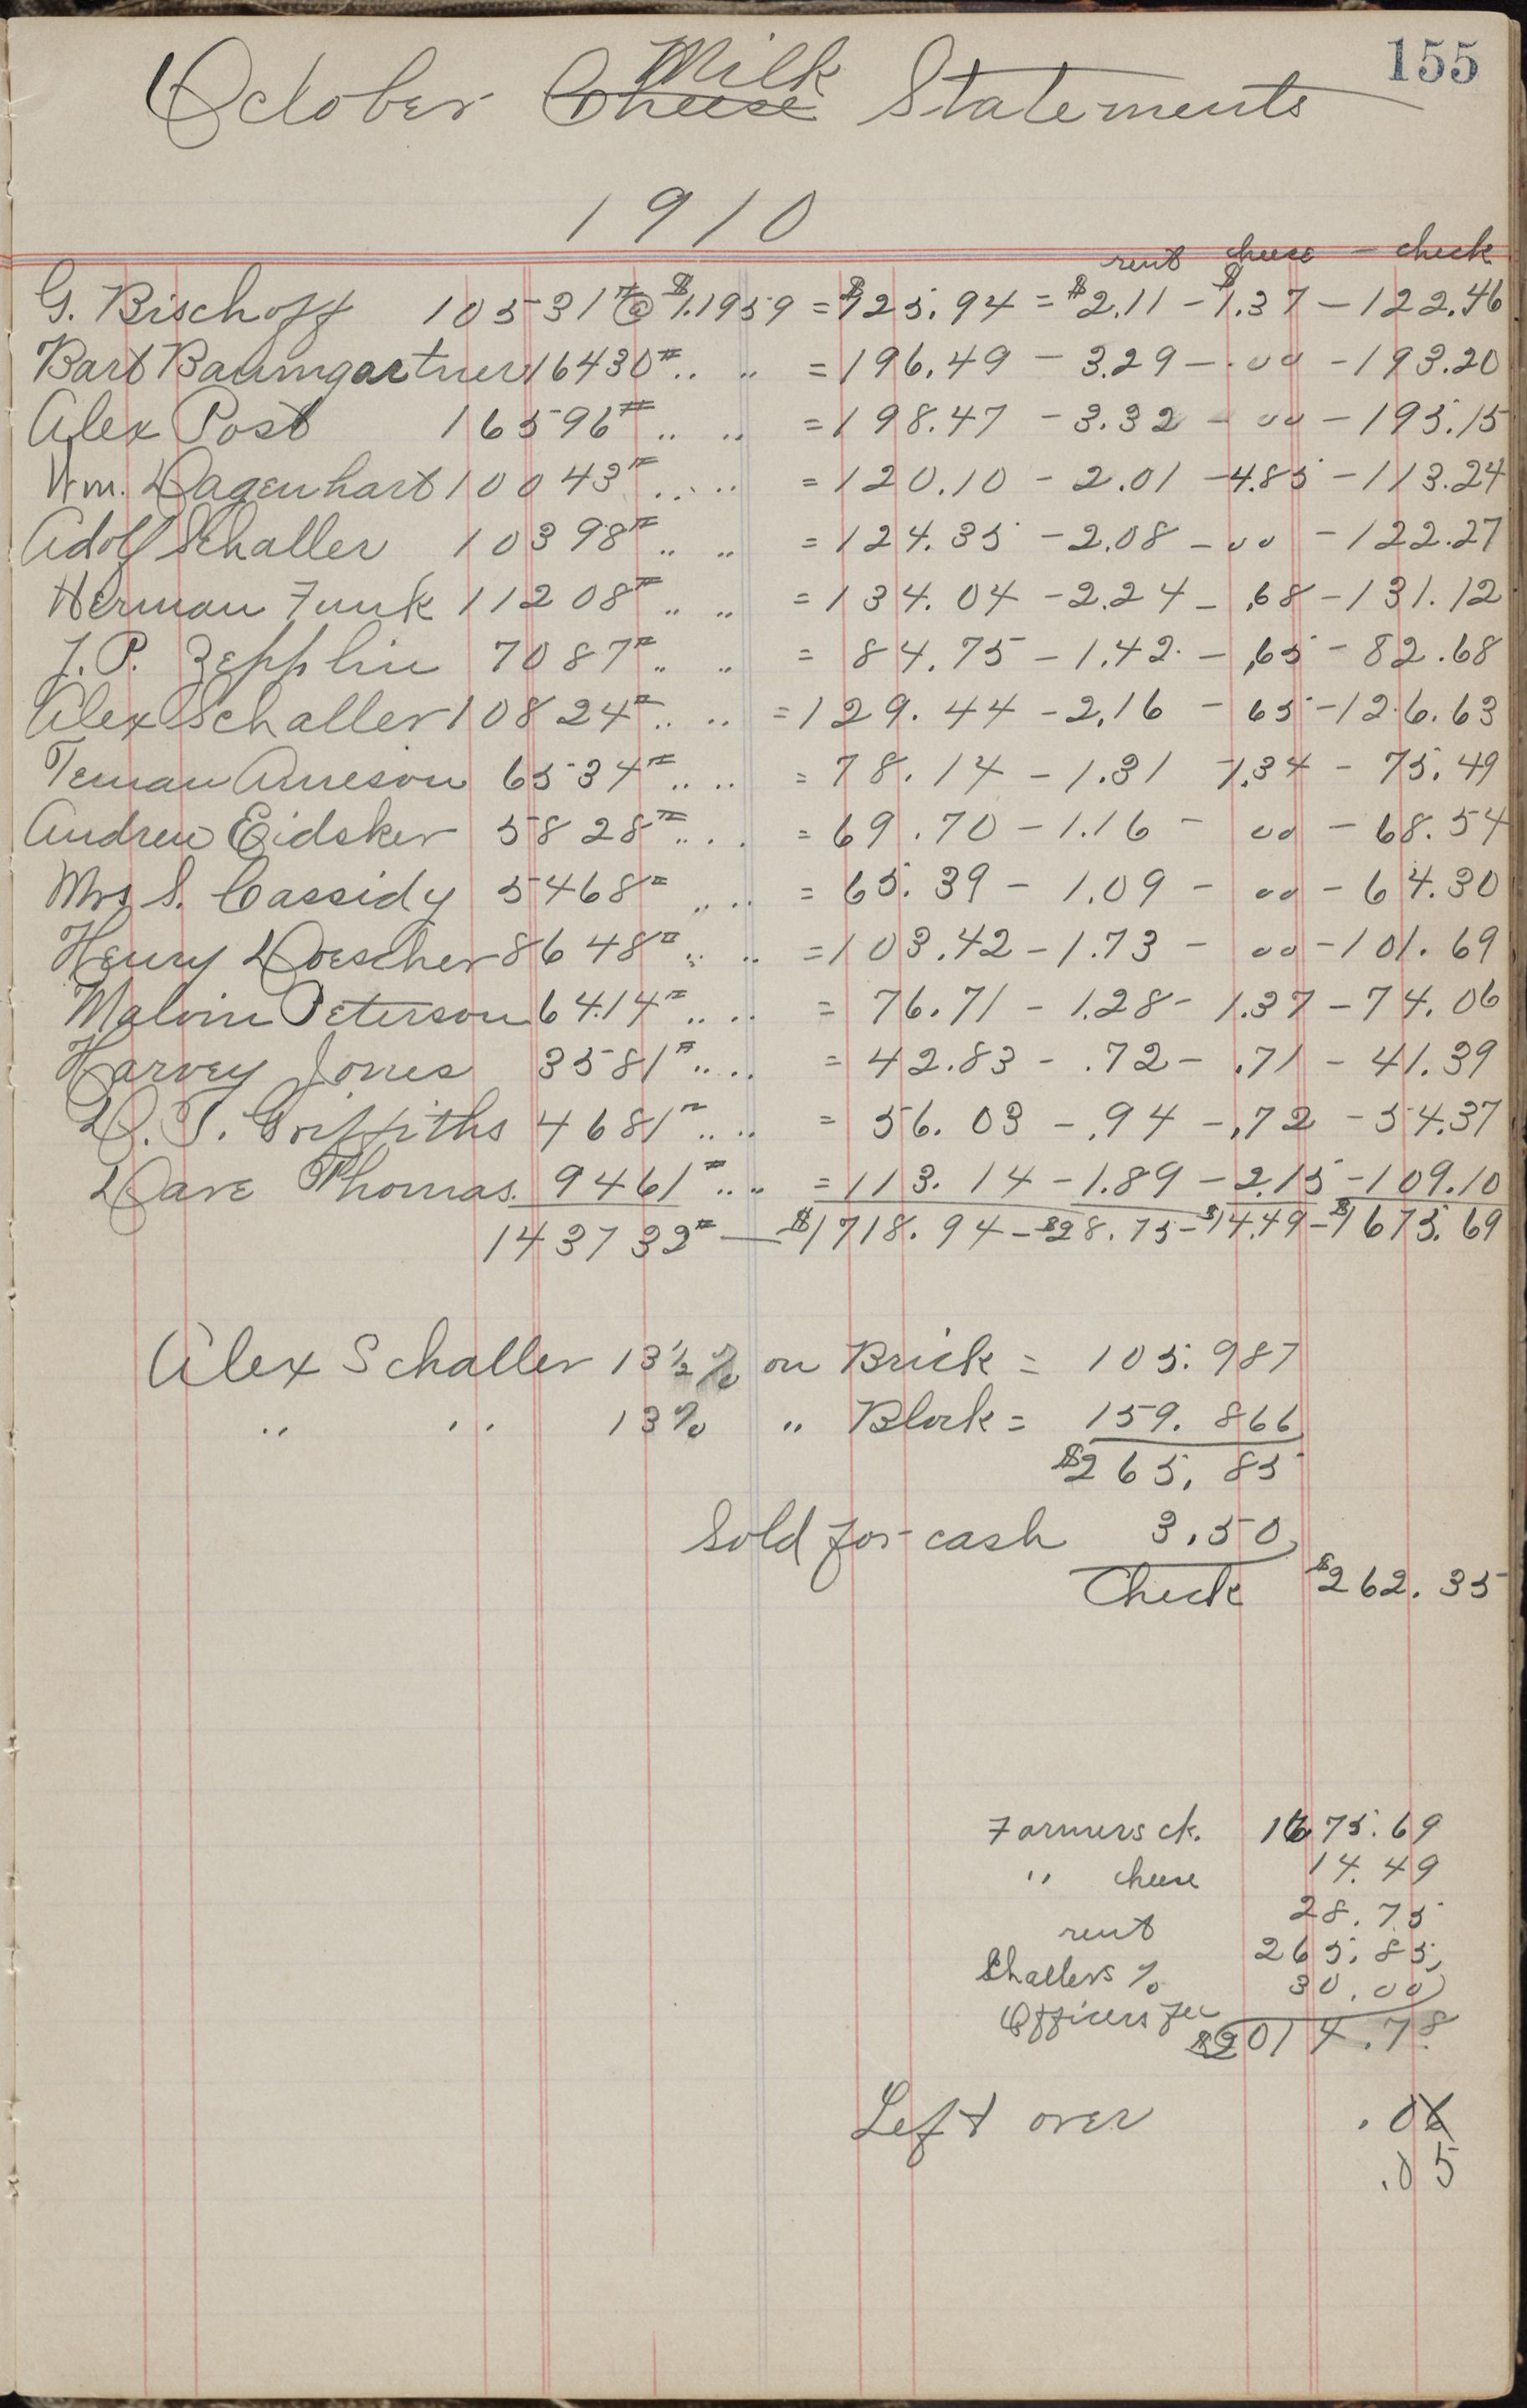 155
October Cheese Milk Statements
1910
rent cheese - check
G. Bischoff 10531# @ $1.1959 = $125.94 = $2.11 - $1.37 - 122.46
Bart Baumgartner 16430# .. .. = 196.49 - 3.29 - .00 - 193.20
Alex Post 16596# .. .. = 198.47 - 3.32 - 00 - 195.15
Wm. Dagenhart 10043# .. .. = 120.10 - 2.01 - 4.85 - 113.24
Adolf Schaller 10398# .. .. = 124.35 - 2.08 - 00 - 122.27
Herman Funk 11208# .. .. = 134.04 - 2.24 - .68 - 131.12
J. P. Zepplin 7087# .. .. = 84.75 - 1.42 - .65 - 82.68
Alex Schaller 10824# .. .. = 129.44 - 2.16 - 65 - 126.63
Teman Arneson 6534# .. .. = 78.14 - 1.31 - 1.34 - 75.49
Andrew Eidsker 5828# .. .. = 69.70 - 1.16 - 00 - 68.54
Mrs S. Cassidy 5468# .. .. = 65.39 - 1.09 - 00 - 64.30
Henry Doescher 8648# .. .. = 103.42 - 1.73 - 00 - 101.69
Malvin Peterson 6414# .. .. = 76.71 - 1.28 - 1.37 - 74.06
Harvey Jones 3581# .. .. = 42.83 - .72 - .71 - 41.39
D. T. Griffiths 4681# .. .. = 56.03 - .94 - .72 - 54.37
Dave Thomas. 9461# .. .. = 113.14 - 1.89 - 2.15 - 109.10
143732# — $1718.94 - $28.75 - $14.49 - $1675.69
Alex Schaller 13½% on Brick = 105.987
.. .. 13% .. Block = 159.866
$265.85
Sold for cash 3.50
Check $262.35
Farmers ck. 1675.69
.. cheese 14.49
rent 28.75
Shallers % 265.85
Officers fee 30.00
$2014.78
Left over .06
.05